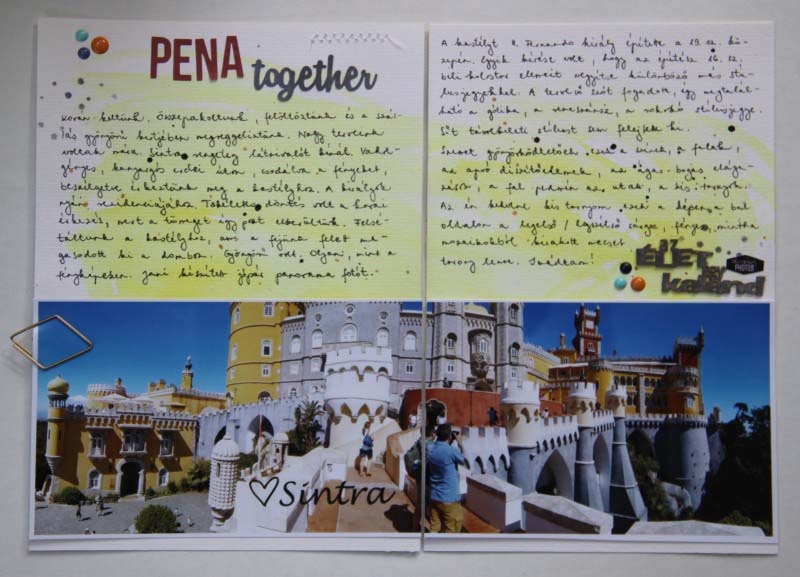 PENA
together
Korán keltünk. Összepakoltunk, felöltöztünk és a szál-
lás gyönyörű kertjében megreggeliztünk. Nagy terveink
voltak mára. Sintra rengeteg látnivalót kínál. Vadd-
görgős, kanyargós erdei úton, csodálva a fényeket,
beszélgetve érkeztünk meg a kastélyhoz. A királyok
nyári rezidenciájához. Tökéletes döntés volt a korai
érkezés, mert a tömeget így pont elkerültük. Felsé-
táltunk a kastélyhoz, ami a fejünk felett ma-
gasodott ki a dombon. Gyönyörű volt. Olyan, mint a
fényképeken. Jani készített zépás panoráma fotót.
A kastélyt II. Fernando király építette a 19. sz. kö-
zepén. Egyik kérése volt, hogy az építész 16. sz.
beli kolostor elemeit vegyítse különböző más stí-
lusjegyekkel. A tervező szót fogadott, így megtalál-
ható a gótika, a reneszánsz, a rokokó stílusjegye.
Sőt távolkeleti stílust sem felejtek ki.
Szemet gyönyörködtetőek ezek a színek, a falak,
az apró díszítőelemek, az ágas-bogas elága-
zások, a fal peremén az utak, a kis tornyok.
Az én kedvenc kis tornyom ezen a képen a bal
oldalon a legelső / legszélső sárga, fényes, mintha
mozaikokból kirakott mecset
torony lenne. Imádtam!
az
ÉLET
egy
kaland
PHOTOS
Sintra